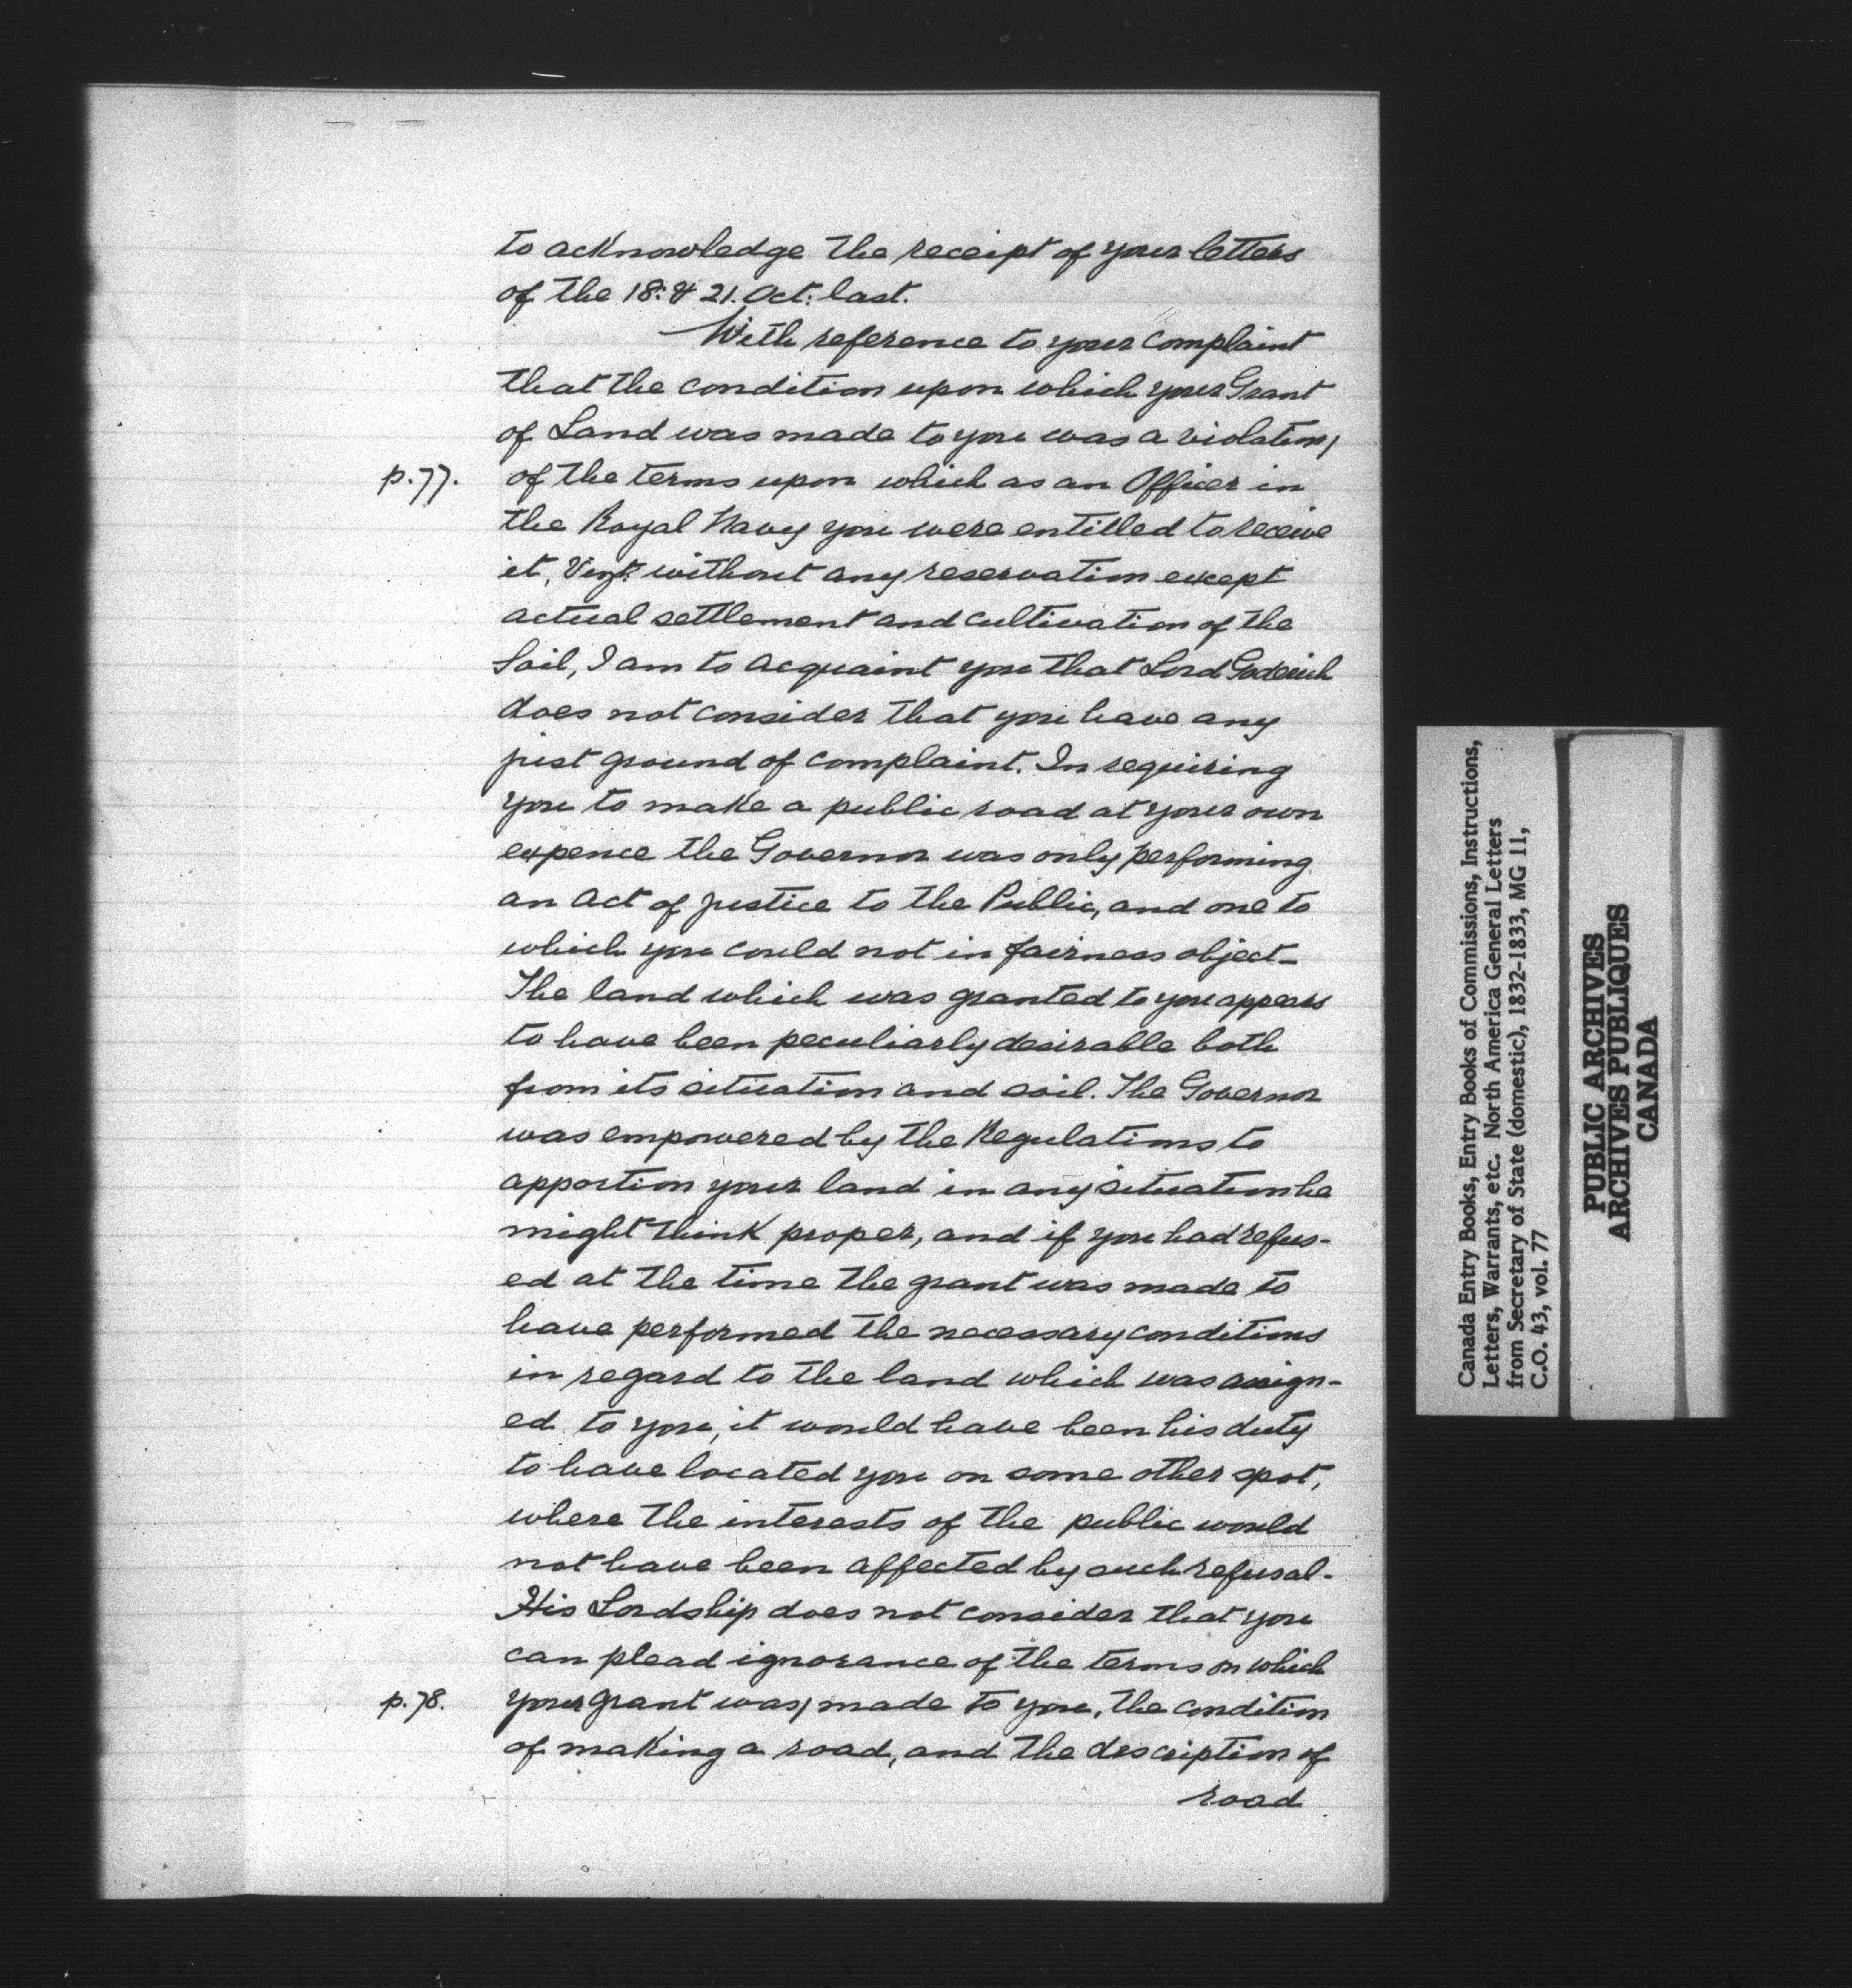 to acknowledge the receipt of your letters
of the 18: & 21. Oct: last.
With reference to your complaint
that the condition upon which your Grant
of Land was made to you was a violation/
p.77. of the terms upon which as an Officer in
the Royal Navy you were entitled to receive
it, Vizt. without any reservation except
actual settlement and cultivation of the
Soil, I am to acquaint you that Lord Goderich
does not consider that you have any
just ground of complaint. In requiring
you to make a public road at your own
expence the Governor was only performing
an act of justice to the Public, and one to
which you could not in fairness object_
The land which was granted to you appears
to have been peculiarly desirable both
from its situation and soil. The Governor
was empowered by the Regulations to
apportion your land in any situation he
might think proper, and if you had refus-
ed at the time the grant was made to
have performed the necessary conditions
in regard to the land which was assign-
ed to you, it would have been his duty
to have located you on some other spot,
where the interests of the public would
not have been affected by such refusal-
His Lordship does not consider that you
can plead ignorance of the terms on which
p.78. your grant was/ made to you, the condition
of making a road, and the description of
road
Canada Entry Books, Entry Books of Commissions, Instructions,
Letters, Warrants, etc. North America General Letters
from Secretary of State (domestic), 1832-1833, MG 11,
C.O. 43, vol. 77
PUBLIC ARCHIVES
ARCHIVES PUBLIQUES
CANADA